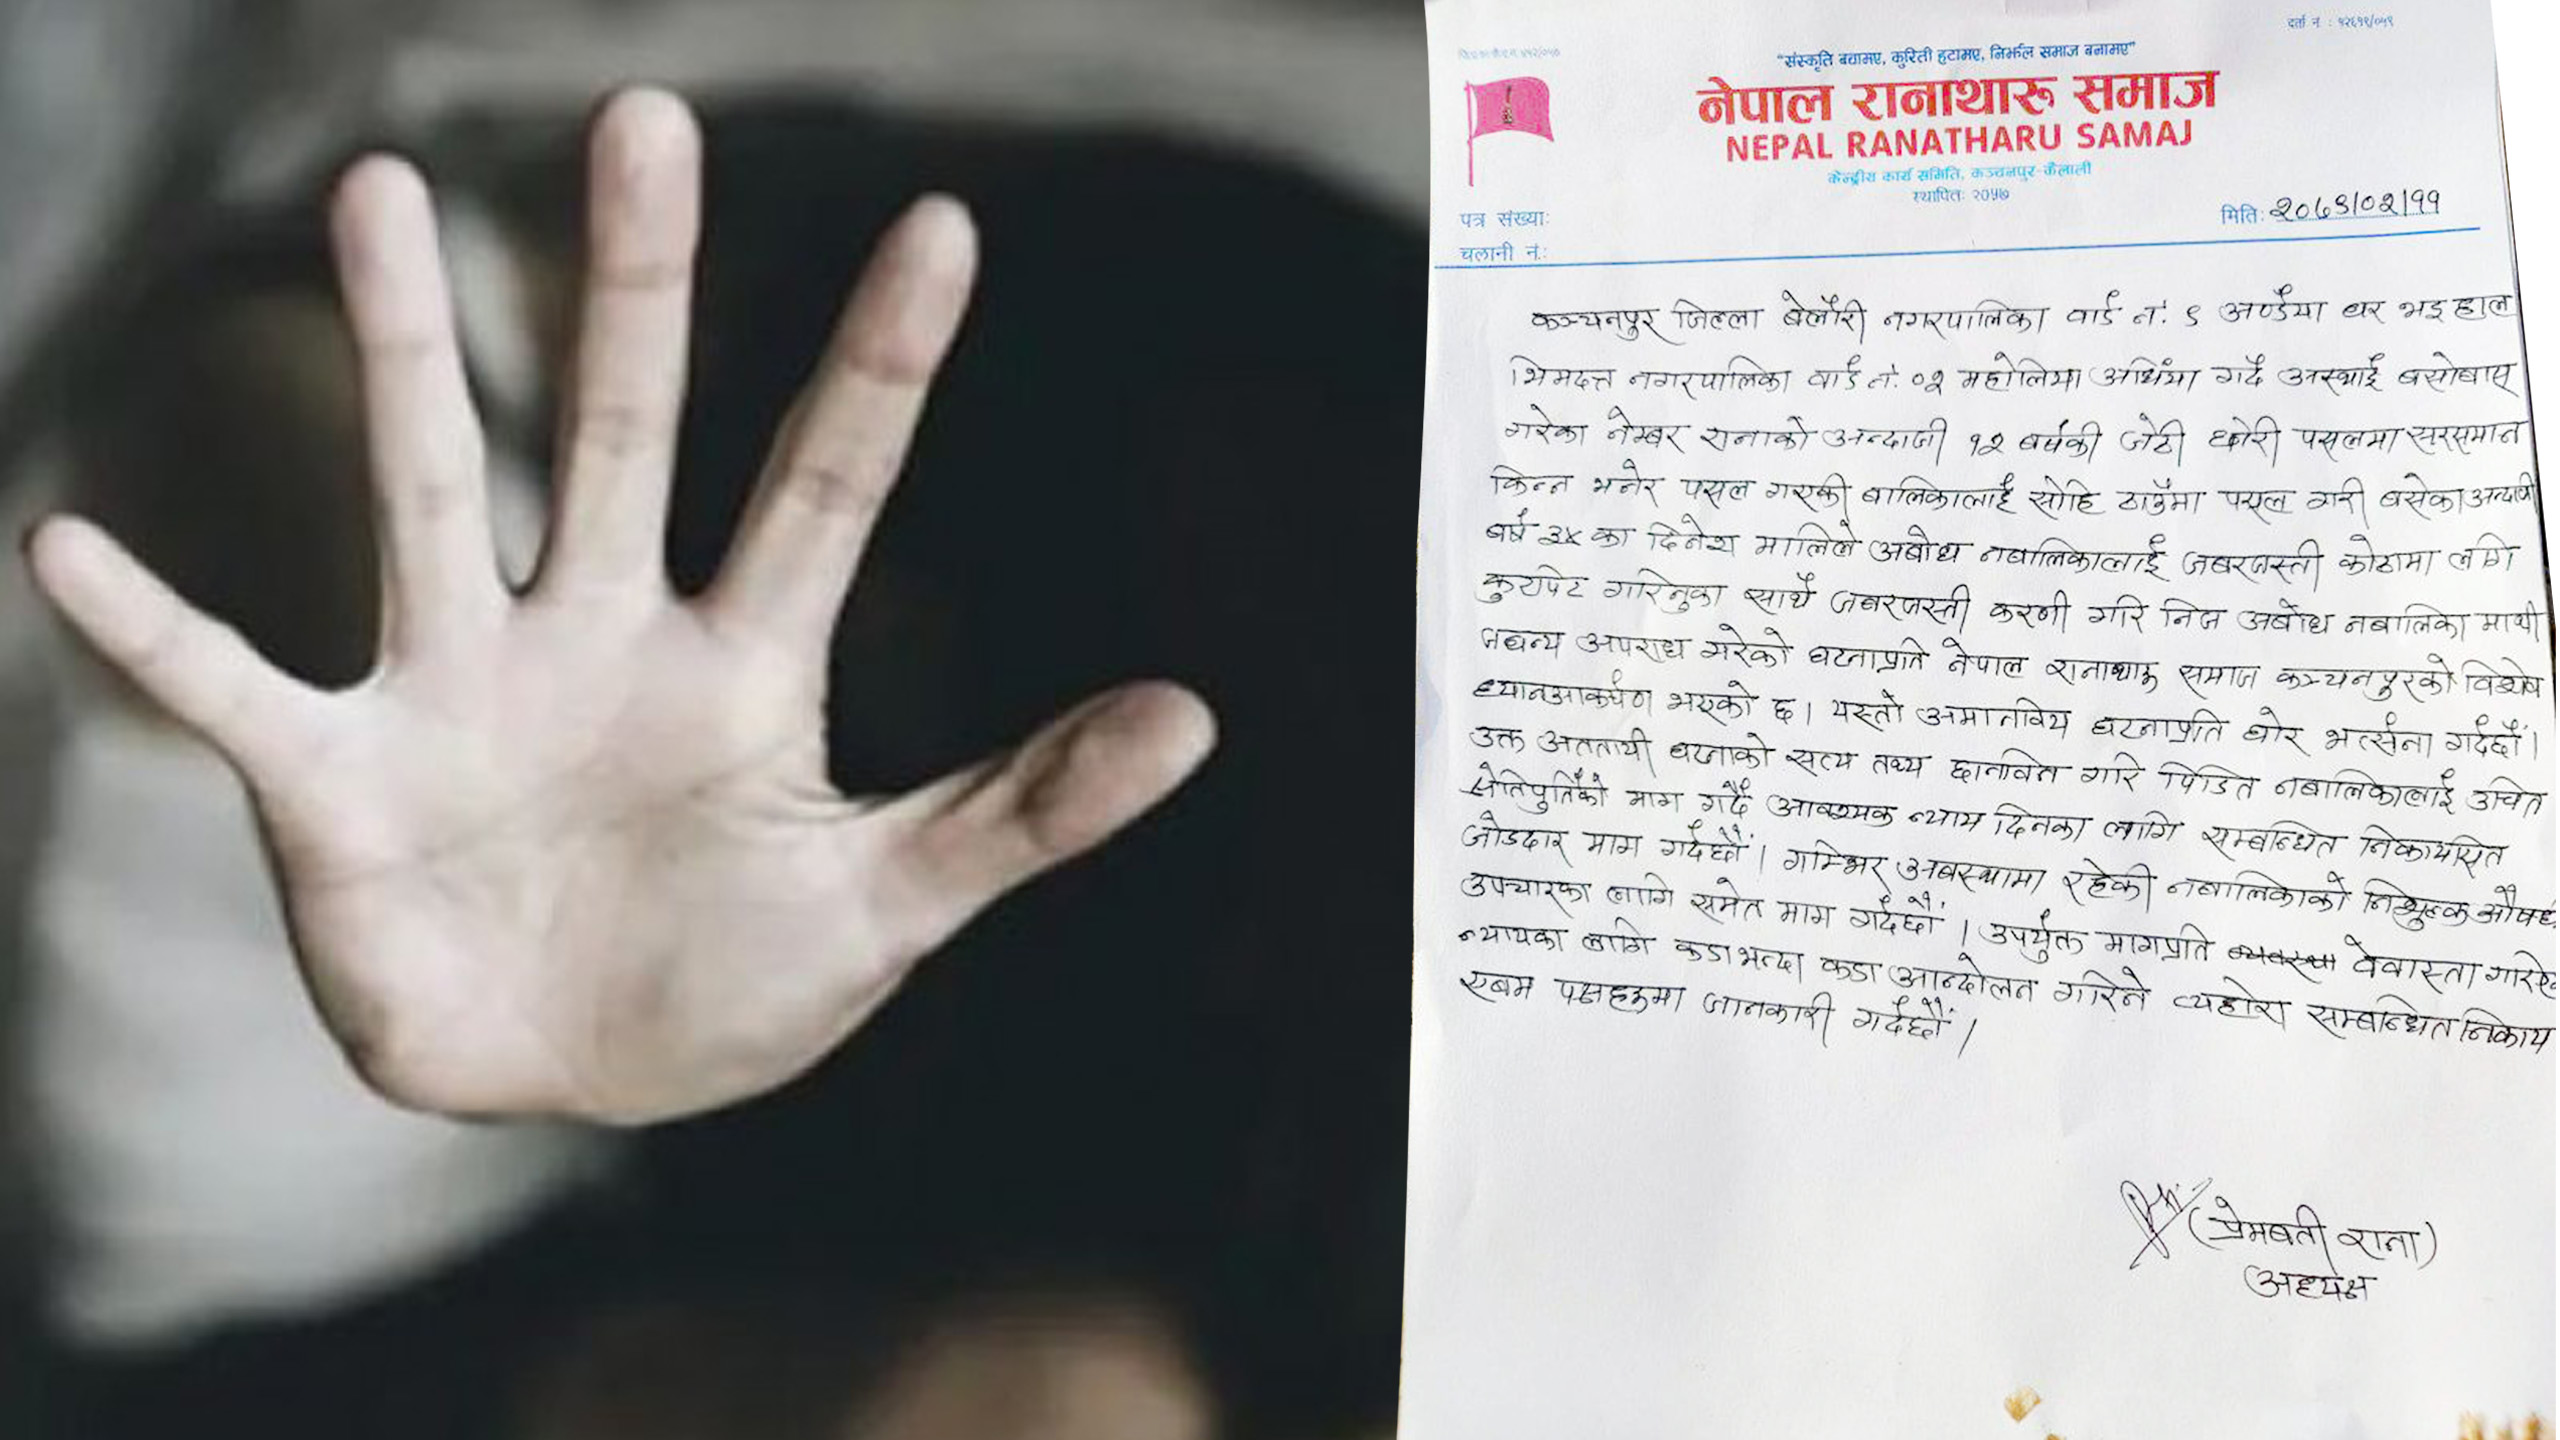 दर्ता नं. : १२६१९/०५९
"संस्कृति बचामए, कुरिती हटामए, निर्झल समाज बनामए"
नेपाल रानाथारू समाज
NEPAL RANATHARU SAMAJ
केन्द्रीय कार्य समिति, कञ्चनपुर-कैलाली
स्थापितः २०५७
पत्र संख्याः
मितिः २०७९/०२/११
चलानी नं.:
कञ्चनपुर जिल्ला बेलौरी नगरपालिका वार्ड नं. ९ अण्डैया घर भइ हाल
भिमदत्त नगरपालिका वार्ड नं. ०२ महोलिया अधिंया गर्दै अस्थाई बसोबास
गरेका नेम्बर रानाको अन्दाजी १२ बर्षकी जेठी छोरी पसलमा सरसमान
किन्न भनेर पसल गएकी बालिकालाई सोहि ठाउँमा पसल गरी बसेका अन्दाजी
बर्ष ३५ का दिनेश मालिले अबोध नबालिकालाई जबरजस्ती कोठामा लगि
कुटपिट गरिनुका साथै जबरजस्ती करणी गरि निज अबोध नबालिका माथी
जघन्य अपराध गरेको घटनाप्रति नेपाल रानाथारू समाज कञ्चनपुरको विशेष
ध्यानआकर्षण भएको छ। यस्तो अमानविय घटनाप्रति घोर भर्त्सना गर्दछौं।
उक्त अततायी घटनाको सत्य तथ्य छानविन गरि पिडित नबालिकालाई उचित
क्षेतिपुर्तिको माग गर्दै आवश्यक न्याय दिनका लागि सम्बन्धित निकायसित
जोडदार माग गर्दछौं। गम्भिर अवस्थामा रहेकी नबालिकाको निशुल्क औषध
उपचारका लागि समेत माग गर्दछौं। उपर्युक्त मागप्रति वेवास्ता गारिए
न्यायका लागि कडा भन्दा कडा आन्दोलन गरिने व्यहोरा सम्बन्धित निकाय
एबम पक्षहरूमा जानकारी गर्दछौं।
(प्रेमबती राना)
अध्यक्ष